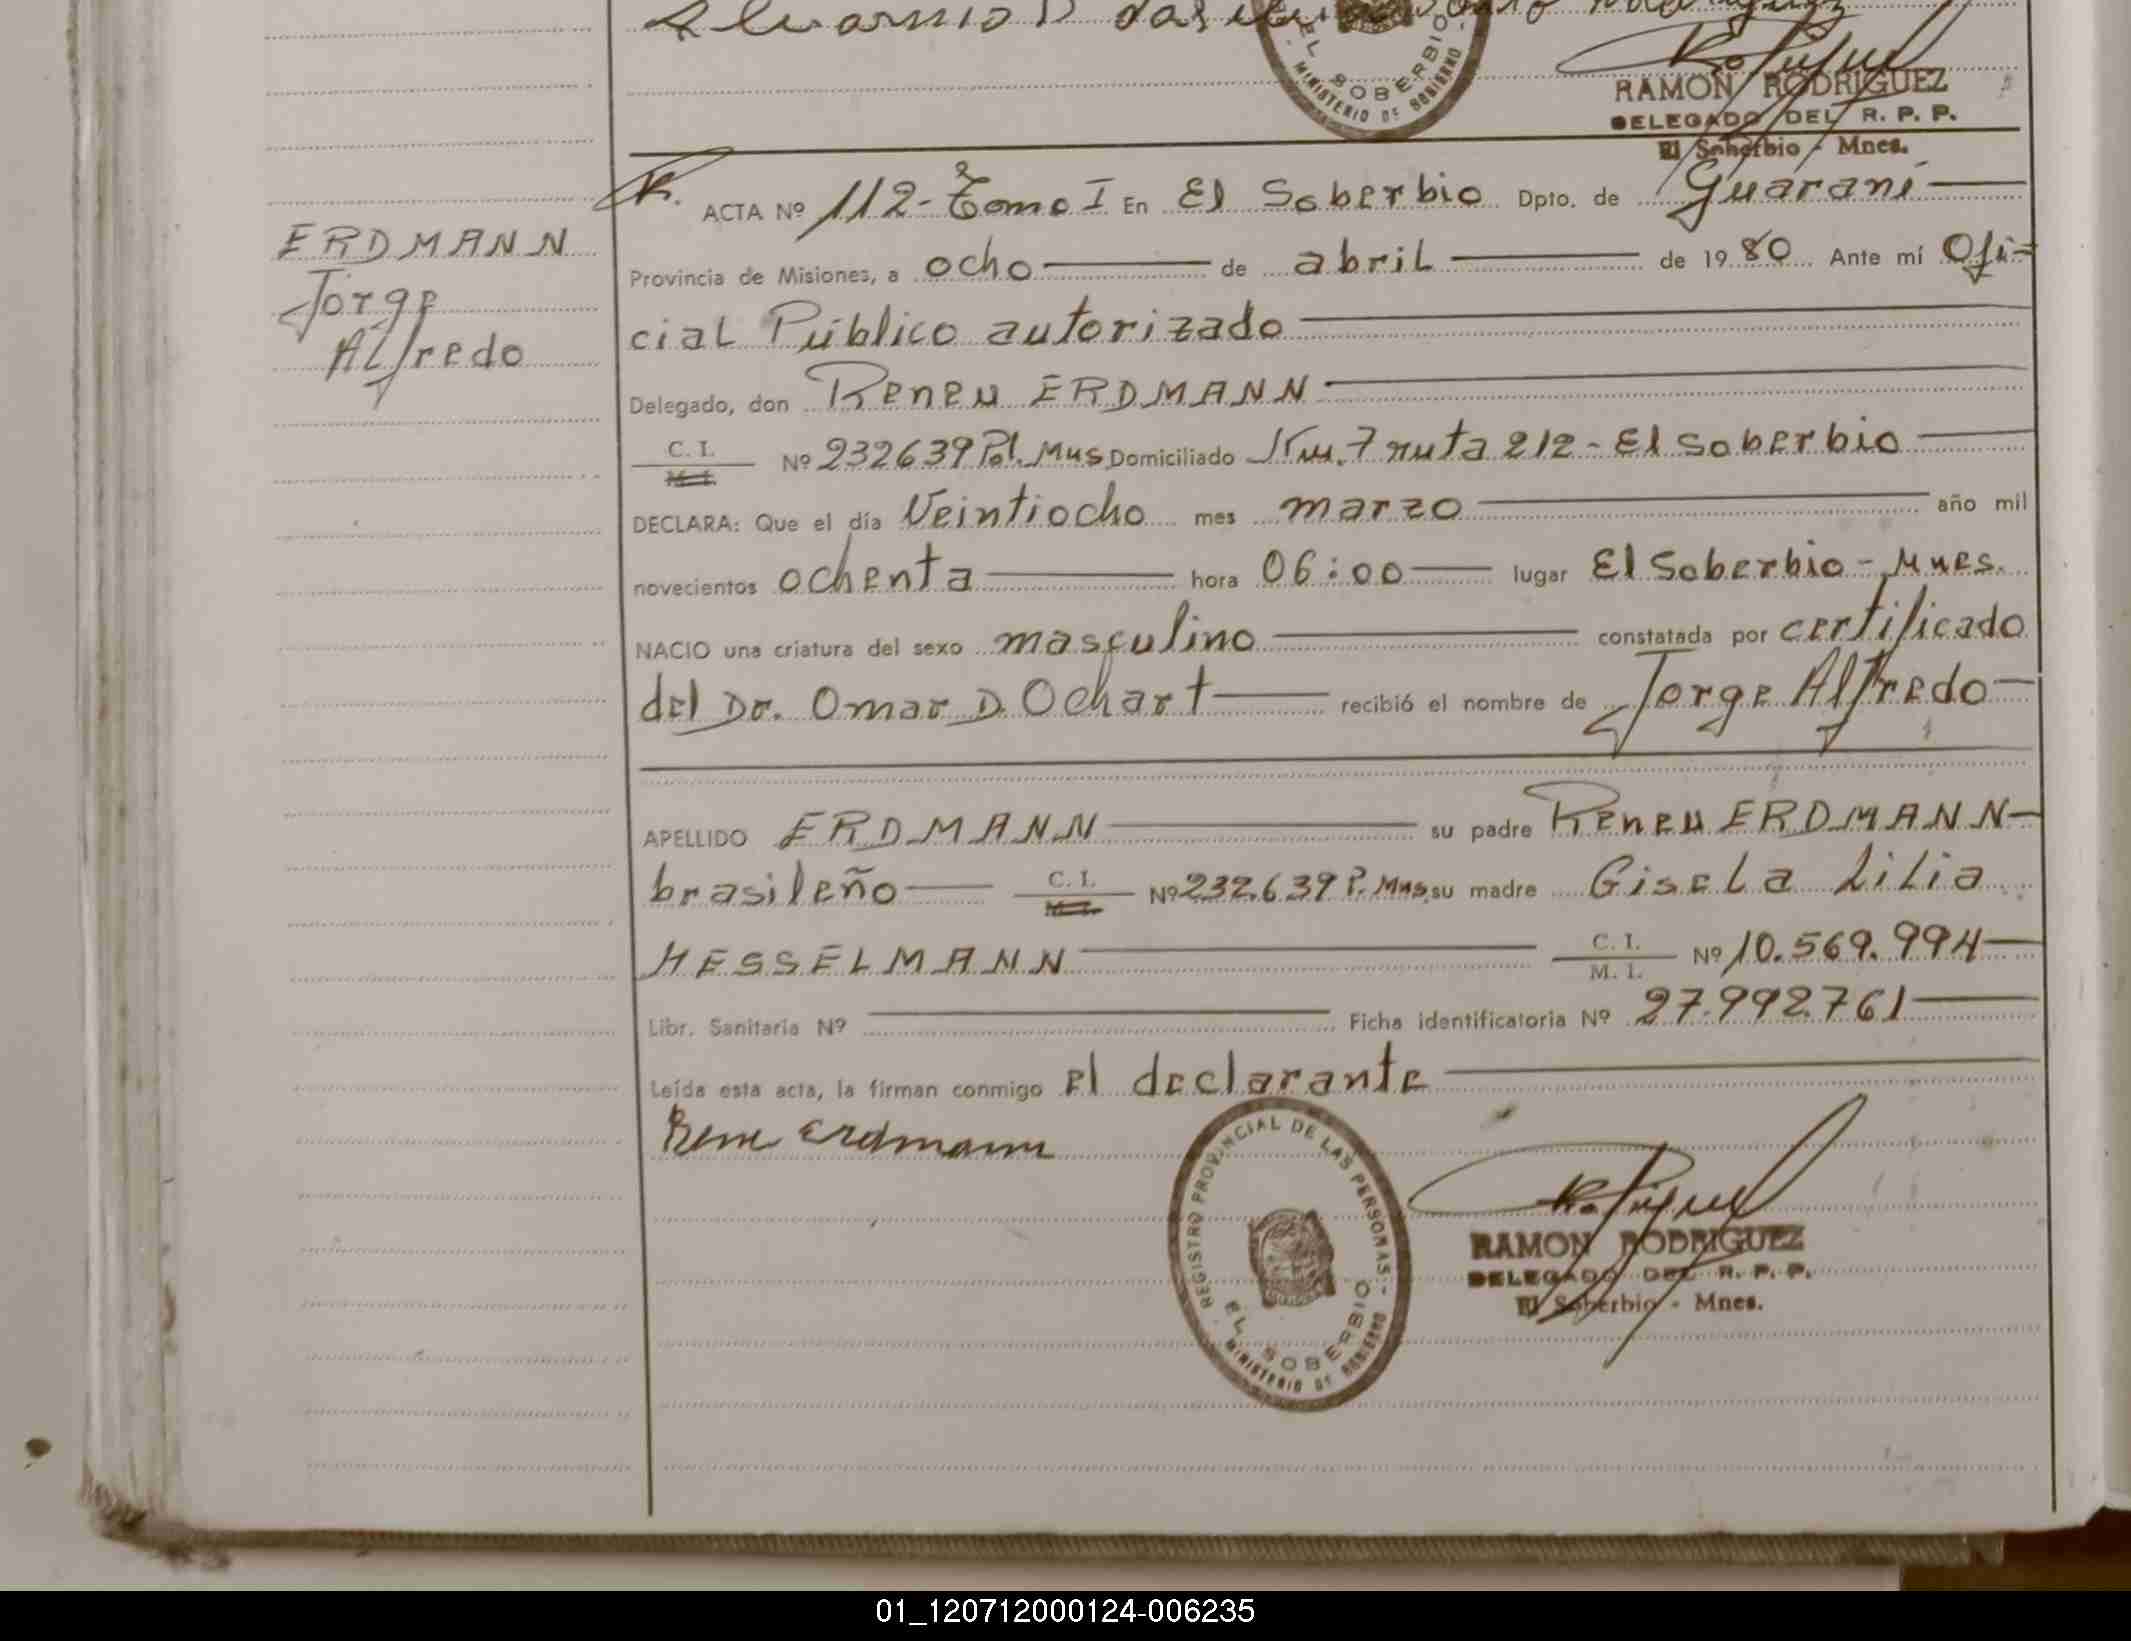 EL SOBERBIO
MINISTERIO DE GOBIERNO
RAMON RODRIGUEZ
DELEGADO DEL R. P. P.
El Soberbio - Mnes.
ERDMANN
Jorge
Alfredo
R. ACTA Nº 112- Tomo I En El Soberbio Dpto. de Guaraní
Provincia de Misiones, a ocho de abril de 1980 Ante mí Ofi=
cial Público autorizado
Delegado, don Reneu ERDMANN
C. I.
M. I.
Nº 232639 Pol. Mns Domiciliado Km. 7 ruta 212 - El Soberbio
DECLARA: Que el día Veintiocho mes marzo año mil
novecientos ochenta hora 06:00 lugar El Soberbio - Mnes.
NACIO una criatura del sexo masculino constatada por certificado
del Dr. Omar D. Ochart recibió el nombre de Jorge Alfredo
APELLIDO ERDMANN su padre Reneu ERDMANN
brasileño C. I. Nº 232.639 P. Mns, su madre Gisela Lilia
M. I.
HESSELMANN C. I. Nº 10.569.994
M. I.
Libr. Sanitaria Nº Ficha identificatoria Nº 27.992.761
Leída esta acta, la firman conmigo el declarante
Erdmann
REGISTRO PROVINCIAL DE LAS PERSONAS
EL SOBERBIO
MINISTERIO DE GOBIERNO
RAMON RODRIGUEZ
DELEGADO DEL R. P. P.
El Soberbio - Mnes.
01_120712000124-006235